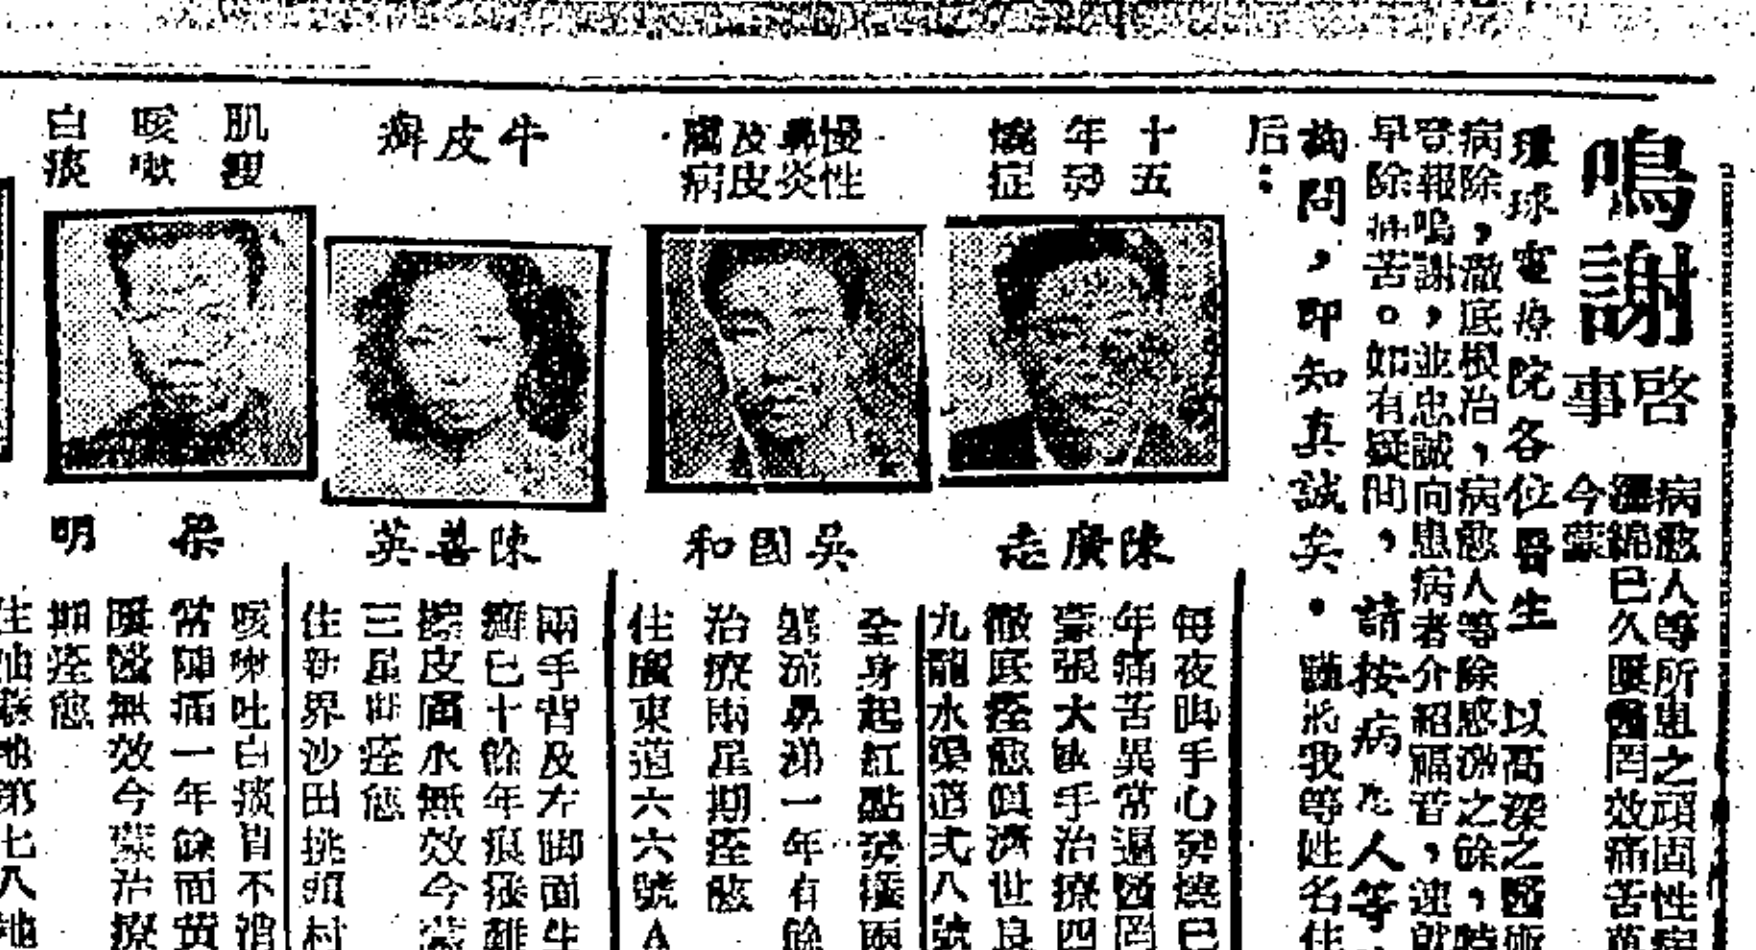 鳴謝
啓事
病愈人等所患之頑固性病
纏綿已久屢醫罔效痛苦萬
今蒙
環球電療院各位醫生 以高深之醫術
病除，澈底根治，病愈人等除感激之餘，特
登報鳴謝，並忠誠向患病者介紹福音，速就
早除病苦。如有疑問，請按病愈人等
詢問，即知真誠矣。謹將我等姓名住
后：
十五
年發
燒症
陳廣志
每夜脚手心發燒已
年痛苦異常遍醫罔
蒙張大國手治療四
徹底痊愈俱濟世良
九龍水渠道弍八號
慢性
鼻炎
及皮
膚病
吳國和
全身起紅點發癢兩
流鼻涕一年有餘
治療兩星期痊愈
住廣東道六六號A
牛皮癬
陳善英
兩手背及左脚面生
癬已十餘年痕癢難
擦皮膚水無效今蒙
三星期痊愈
住新界沙田挑頭村
肌瘦
咳嗽
白痰
梁明
咳嗽吐白痰胃不消
常陣痛一年餘而黃
屢醫無效今蒙治療
期痊愈
住油蔴地第七八地